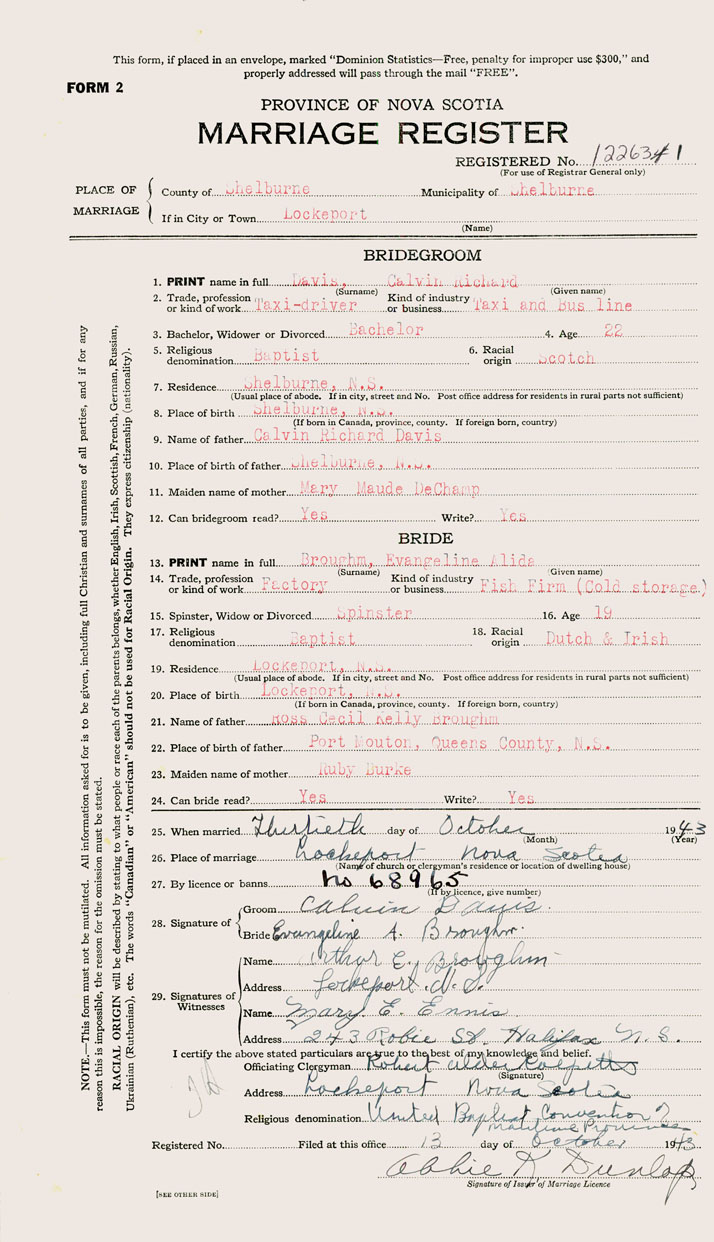 This form, if placed in an envelope, marked "Dominion Statistics—Free, penalty for improper use $300," and
properly addressed will pass through the mail "FREE".
FORM 2
PROVINCE OF NOVA SCOTIA
MARRIAGE REGISTER
REGISTERED No. 122634 1
(For use of Registrar General only)
PLACE OF MARRIAGE
County of Shelburne Municipality of Shelburne
If in City or Town Lockeport
(Name)
BRIDEGROOM
1. PRINT name in full Davis, Calvin Richard
(Surname) (Given name)
2. Trade, profession or kind of work Taxi-driver Kind of industry or business Taxi and Bus line
3. Bachelor, Widower or Divorced Bachelor 4. Age 22
5. Religious denomination Baptist 6. Racial origin Scotch
7. Residence Shelburne, N.S.
(Usual place of abode. If in city, street and No. Post office address for residents in rural parts not sufficient)
8. Place of birth Shelburne, N.S.
(If born in Canada, province, county. If foreign born, country)
9. Name of father Calvin Richard Davis
10. Place of birth of father Shelburne, N.S.
11. Maiden name of mother Mary Maude DeChamp
12. Can bridegroom read? Yes Write? Yes
BRIDE
13. PRINT name in full Broughm, Evangeline Alida
(Surname) (Given name)
14. Trade, profession or kind of work Factory Kind of industry or business Fish Firm (Cold storage)
15. Spinster, Widow or Divorced Spinster 16. Age 19
17. Religious denomination Baptist 18. Racial origin Dutch & Irish
19. Residence Lockeport, N.S.
(Usual place of abode. If in city, street and No. Post office address for residents in rural parts not sufficient)
20. Place of birth Lockeport, N.S.
(If born in Canada, province, county. If foreign born, country)
21. Name of father Ross Cecil Kelly Broughm
22. Place of birth of father Port Mouton, Queens County, N.S.
23. Maiden name of mother Ruby Burke
24. Can bride read? Yes Write? Yes
25. When married Thirtieth day of October 1943
(Month) (Year)
26. Place of marriage Lockeport Nova Scotia
(Name of church or clergyman's residence or location of dwelling house)
27. By licence or banns No 68965
(If by licence, give number)
28. Signature of
Groom Calvin Davis.
Bride Evangeline A. Broughm.
29. Signatures of Witnesses
Name Arthur E. Broughm
Address Lockeport N.S.
Name Mary E. Ennis
Address 243 Robie St. Halifax N.S.
I certify the above stated particulars are true to the best of my knowledge and belief.
Officiating Clergyman Robert Alder
(Signature)
Address Lockeport Nova Scotia
Religious denomination United Baptist Convention
Maritime Provinces
Registered No. Filed at this office 13 day of October 1943
Abbie K Dunlop
Signature of Issuer of Marriage Licence
[SEE OTHER SIDE]
NOTE.—This form must not be mutilated. All information asked for is to be given, including full Christian and surnames of all parties, and if for any
reason this is impossible, the reason for the omission must be stated.
RACIAL ORIGIN will be described by stating to what people or race each of the parents belongs, whether English, Irish, Scottish, French, German, Russian,
Ukrainian (Ruthenian), etc. The words "Canadian" or "American" should not be used for Racial Origin. They express citizenship (nationality).